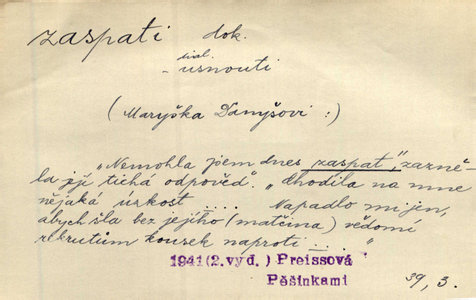 zaspati dok.
dial.
- usnouti
(Maryška Danýšovi :)
„Nemohla jsem dnes „zaspat,“ zazně-
la její tichá odpověď. „Chodila na mne
nějaká úzkost .... Napadlo mi jen,
abych šla bez jejího (matčina) vědomí
rekrutům kousek naproti ... “
1941 (2.vyd.) Preissová
Pěšinkami
39, 3.